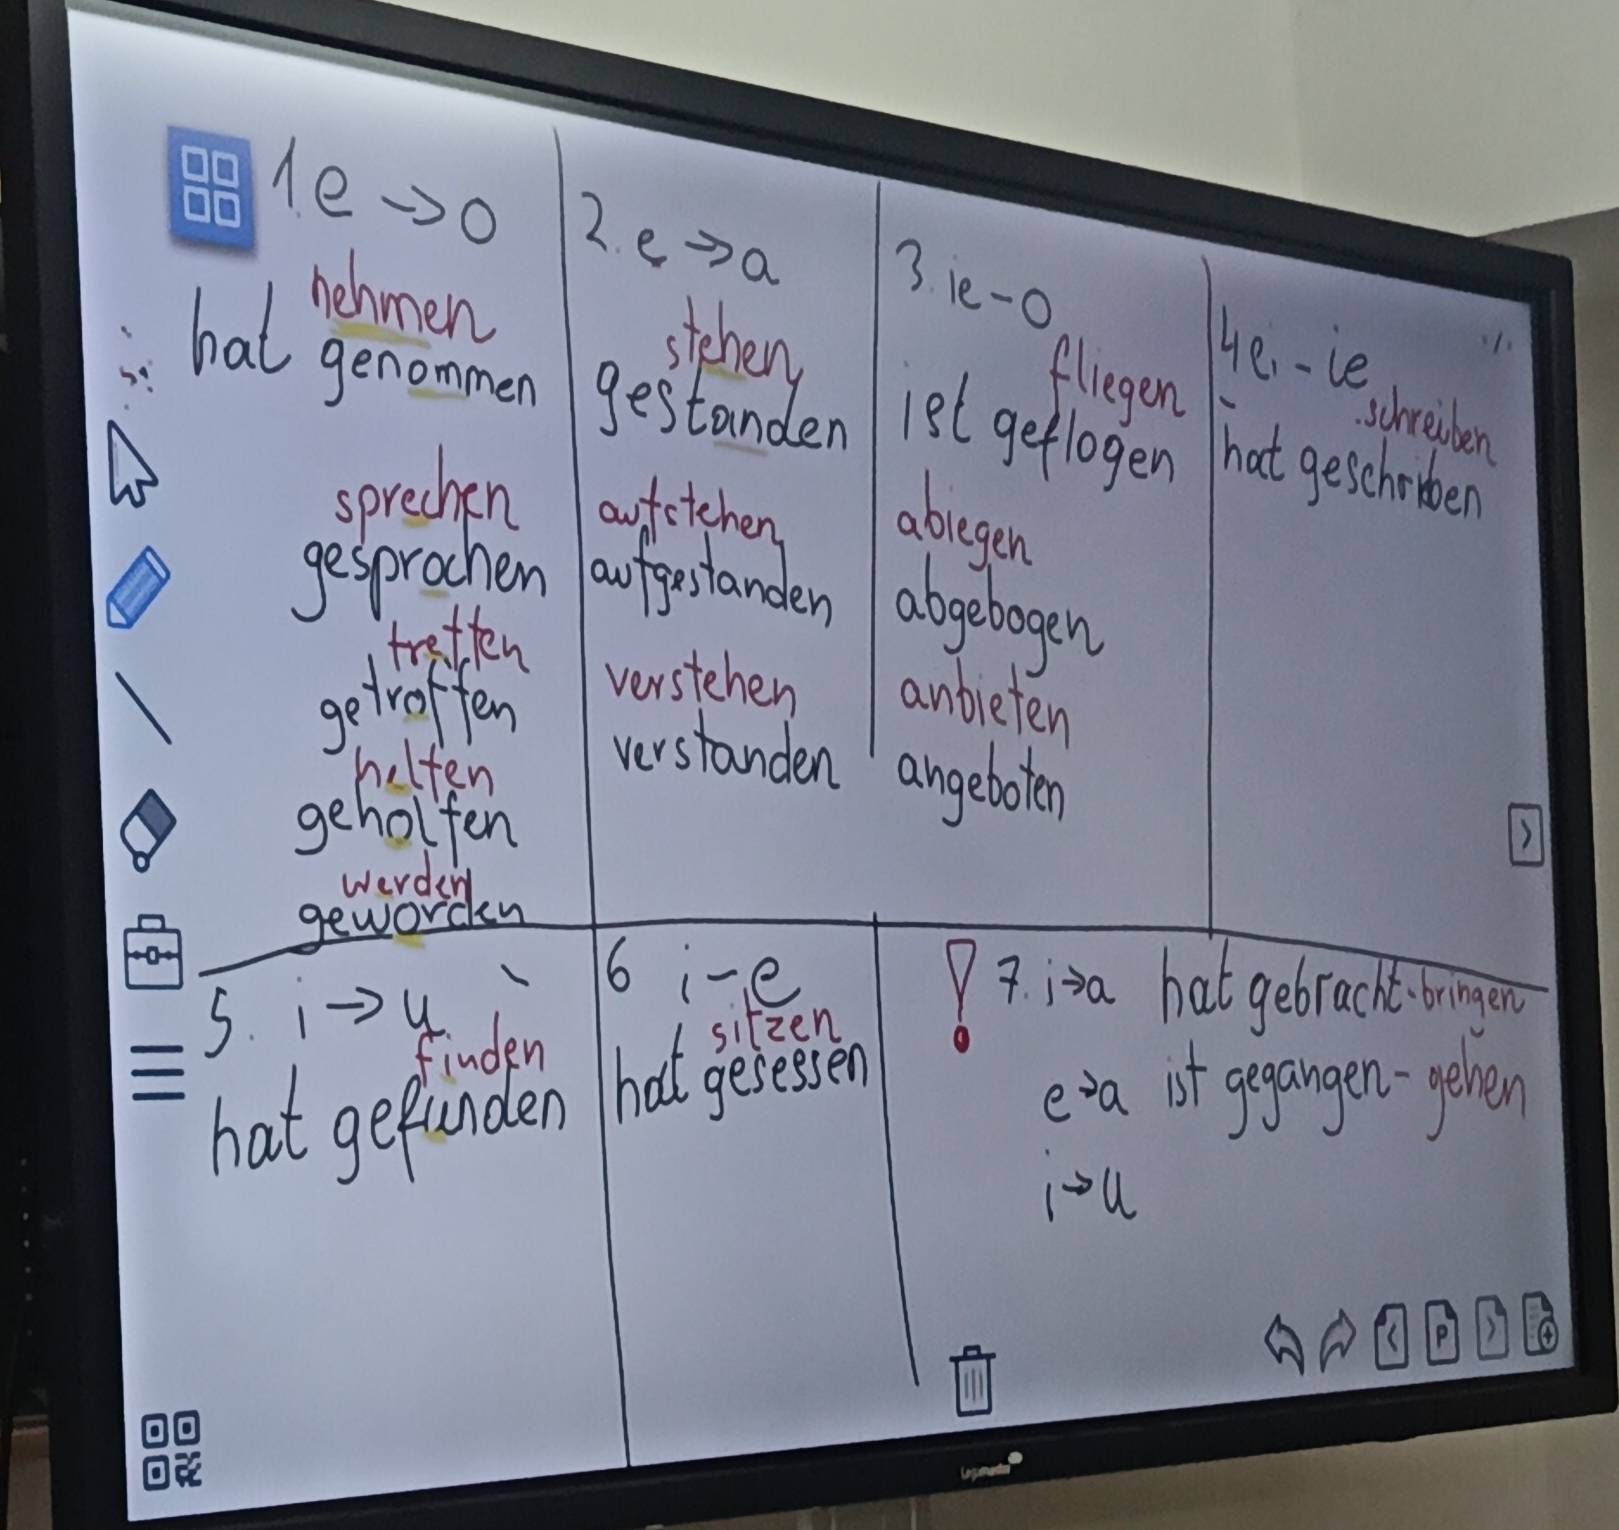 1. e → o
nehmen
hat genommen
sprechen
gesprochen
treffen
getroffen
helfen
geholfen
werden
geworden
2. e → a
stehen
gestanden
aufstehen
aufgestanden
verstehen
verstanden
3. ie - o
fliegen
ist geflogen
abiegen
abgebogen
anbieten
angeboten
4 ei - ie
schreiben
hat geschrieben
5. i → u
finden
hat gefunden
6 i - e
sitzen
hat gesessen
! 7. i → a hat gebracht - bringen
e → a ist gegangen - gehen
i → u
P